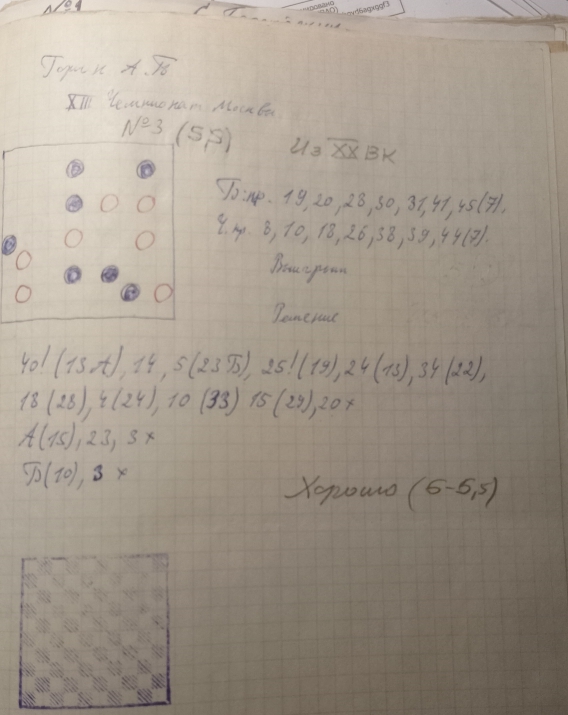 №1
Горин А.Б
XII Чемпионат Москвы.
№3 (5,5)
Из XX ВК
Б.пр. 19,20,28,30,31,41,45(7).
Ч.пр. 8,10,18,26,38,39,44(7).
Выигрыш
Решение
40! (13А), 14, 5(23Б), 25! (19), 24(13), 34(22),
18(28), 4(24), 10(33) 15(29), 20×
А(15), 23, 3×
Б(10), 3×
Хорошо (6-6,5)